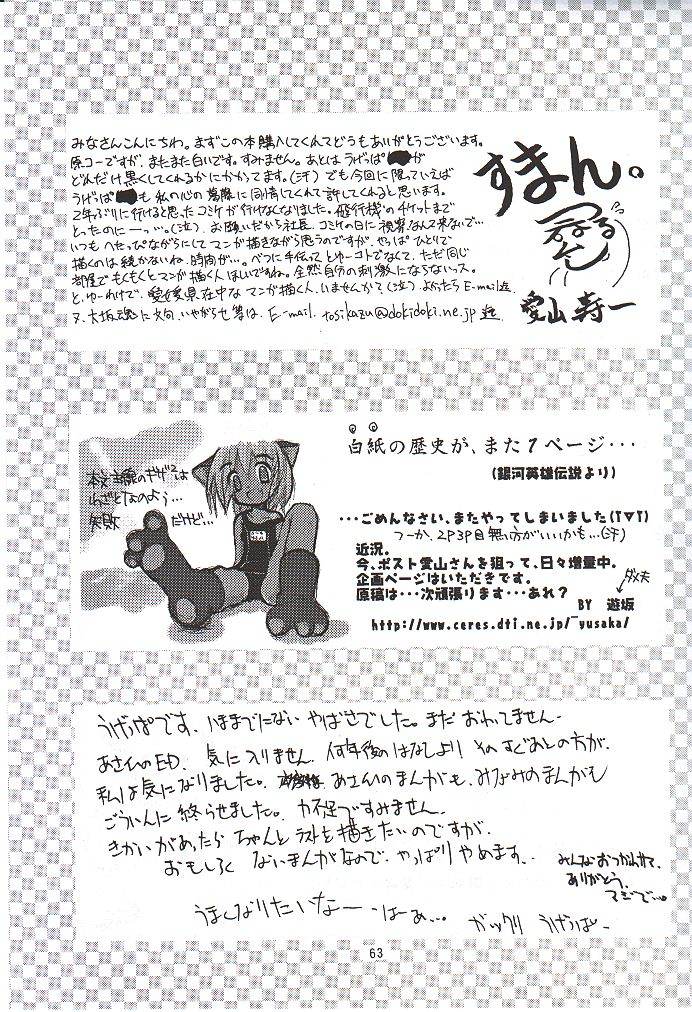 みなさんこんにちわ。まずこの本購入してくれてどうもありがとうございます。
原コーですが、またまた白いです。すみません。あとは うげっぱ が
どれだけ黒くしてくれるかにかかってます。(汗) でも今回に限っていえば
うげっぱ も 私の心の葛藤に同情してくれて許してくれると思います。
2年ぶりに行けると思ったコミケが行けなくなりました。飛行機のチケットまで
とったのにーっ…(泣) お願いだから社長、コミケの日に視察なんて来ないで…
いつも へせっぴながらにして マンガ描きながら思うのですが、やっぱ ひとりで
描くのは続かないね、時間が…。べつに手伝って とゆーコトでなくて、ただ同じ
部屋で もくもくとマンガ描く人 ほしいですねぇ。全然自分の刺激にならないっス。
と、ゆーわけで、愛媛県在中な マンガ描く人、いませんか？(泣) よかったら E-mail
又、大坂魂に 文句、いやがらせ等は、E-mail. tosikazu@dokidoki.ne.jp
すまん。
愛山 寿一
白紙の歴史が、また1ページ・・・
(銀河英雄伝説より)
本文主線のギザギザは
しごとなのよぅ…
失敗 だけど…
・・・ごめんなさい、またやってしまいました(T▽T)
つーか、2P3P目 無い方がいいかも…(汗)
近況。
今、ポスト愛山さんを狙って、日々増量中。
企画ページはいただきです。
原稿は・・・次頑張ります・・・あれ？
ダメ夫
BY 遊坂
http://www.ceres.dti.ne.jp/~yusaka/
うげっぱです、いままでにない やばさでした。まだ おわってません。
あさんのED、気に入りません。何年後のはなしより そのすぐあとの方が、
私は気になりました。あさんのまんがも、みなみのまんがも
ごういんに 終らせました。力不足ですみません。
きかいがあったら ちゃんと ラストを描きたいのですが、
おもしろく ないまんがなので、やっぱり やめます。
みんなおつかれさて、
ありがとう。
マジで…。
うまくなりたいなー はーぁ…。 ガックリ うげっぱ。
63